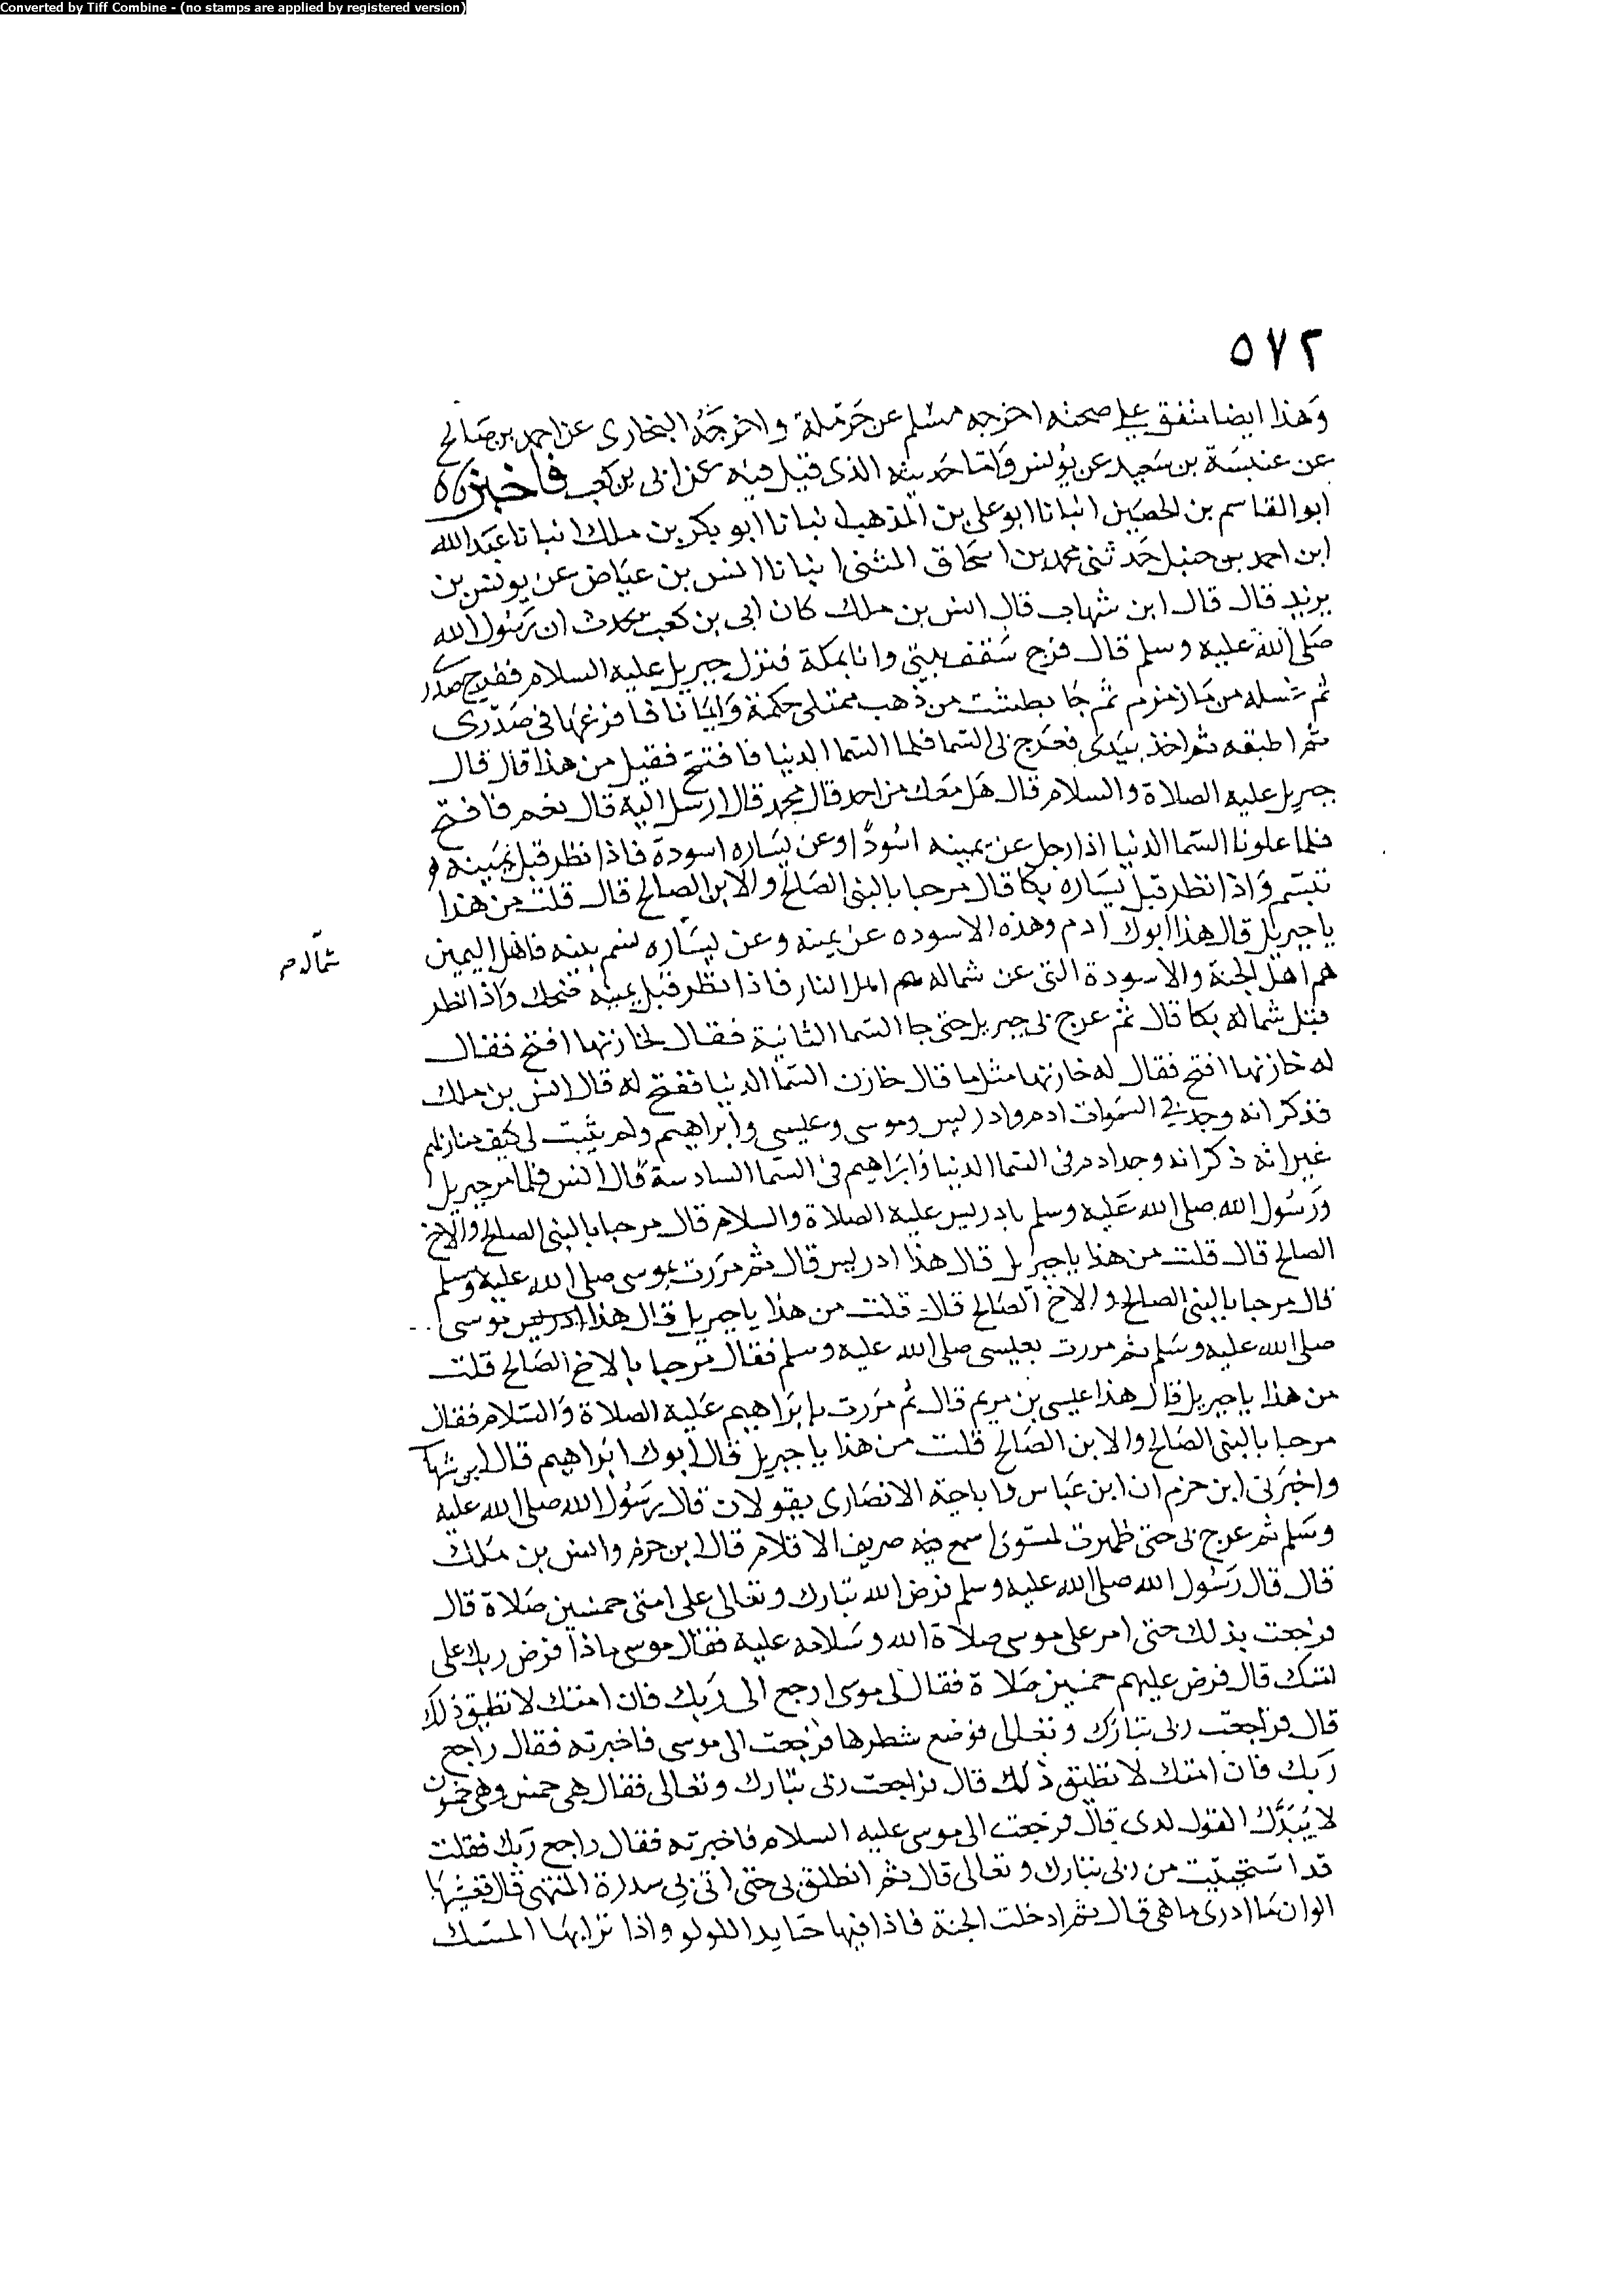 Converted by Tiff Combine - (no stamps are applied by registered version)
٥٧٢
وهذا ايضا متفق على صحته اخرجه مسلم عن حرملة واخرجه البخارى عن احمد بن صالح
عن عنبسة بن سعيد عن يونس واما حديثه الذى قيل فيه عن ابى بن كعب فاخبرناه
ابو القاسم بن الحصين انبانا ابو على بن المذهب انبانا ابو بكر بن ملك انبانا عبد الله
ابن احمد بن حنبل حدثنى محمد بن اسحاق المثنى انبانا انس بن عياض عن يونس بن
يزيد قال قال ابن شهاب قال انس بن ملك كان ابى بن كعب يحدث ان رسول الله
صلى الله عليه وسلم قال فرج سقف بيتى وانا بمكة فنزل جبريل عليه السلام ففرج صدر
ثم غسله من ما زمزم ثم جا بطست من ذهب ممتلى حكمة وايمانا فافرغها فى صدرى
ثم اطبقه ثم اخذ بيدى فعرج بى الى السما فلما السما الدنيا فافتتح فقيل من هذا قال قال
جبريل عليه الصلاة والسلام قال هل معك من احد قال محمد قال ارسل اليه قال نعم فافتح
فلما علونا السما الدنيا اذا رجل عن يمينه اسودة وعن يساره اسودة فاذا نظر قبل يمينه
تبسم واذا نظر قبل يساره بكا قال مرحبا بالنبى الصالح والابن الصالح قال قلت من هذا
يا جبريل قال هذا ابوك ادم وهذه الاسوده عن يمينه وعن يساره نسم بنيه فاهل اليمين
شماله م
هم اهل الجنة والاسودة التى عن شماله هم اهل النار فاذا نظر قبل يمينه ضحك واذا نظر
قبل شماله بكا قال ثم عرج بى جبريل حتى جا السما الثانية فقال لخازنها افتح فقال
له خازنها افتح فقال له خازنها مثل ما قال خازن السما الدنيا ففتح له قال انس بن ملك
فذكر انه وجد فى السموات ادم وادريس وموسى وعيسى وابراهيم ولم يثبت لى كيف منازلهم
غير انه ذكر انه وجد ادم فى السما الدنيا وابراهيم فى السما السادسة قال انس فلما مر جبريل
ورسول الله صلى الله عليه وسلم بادريس عليه الصلاة والسلام قال مرحبا بالنبى الصالح والاخ
الصالح قال قلت من هذا يا جبريل قال هذا ادريس قال ثم مررت بموسى صلى الله عليه وسلم
قال مرحبا بالنبى الصالح والاخ الصالح قال قلت من هذا يا جبريل قال هذا ادريس موسى
صلى الله عليه وسلم ثم مررت بعيسى صلى الله عليه وسلم فقال مرحبا بالاخ الصالح قلت
من هذا يا جبريل قال هذا عيسى بن مريم قال ثم مررت بابراهيم عليه الصلاة والسلام فقال
مرحبا بالنبى الصالح والابن الصالح قلت من هذا يا جبريل قال ابوك ابراهيم قال ابن شهاب
واخبرنى ابن حزم ان ابن عباس وابا حبة الانصارى يقولان قال رسول الله صلى الله عليه
وسلم ثم عرج بى حتى ظهرت لمستوى اسمع فيه صريف الاقلام قال ابن حزم وانس بن ملك
قال قال رسول الله صلى الله عليه وسلم فرض الله تبارك وتعالى على امتى خمسين صلاة قال
فرجعت بذلك حتى امر على موسى صلاة الله وسلامه عليه فقال موسى ماذا فرض ربك على
امتك قال فرض عليهم خمسين صلاة فقال لى موسى ارجع الى ربك فان امتك لا تطيق ذلك
قال فراجعت ربى تبارك وتعالى فوضع شطرها فرجعت الى موسى فاخبرته فقال راجع
ربك فان امتك لا تطيق ذلك قال فراجعت ربى تبارك وتعالى فقال هى خمس وهى خمسون
لا يبدل القول لدى قال فرجعت الى موسى عليه السلام فاخبرته فقال راجع ربك فقلت
قد استحييت من ربى تبارك وتعالى قال ثم انطلق بى حتى اتى بى سدرة المنتهى قال فغشيها
الوان ما ادرى ما هى قال ثم ادخلت الجنة فاذا فيها حبايد اللولو واذا ترابها المسك